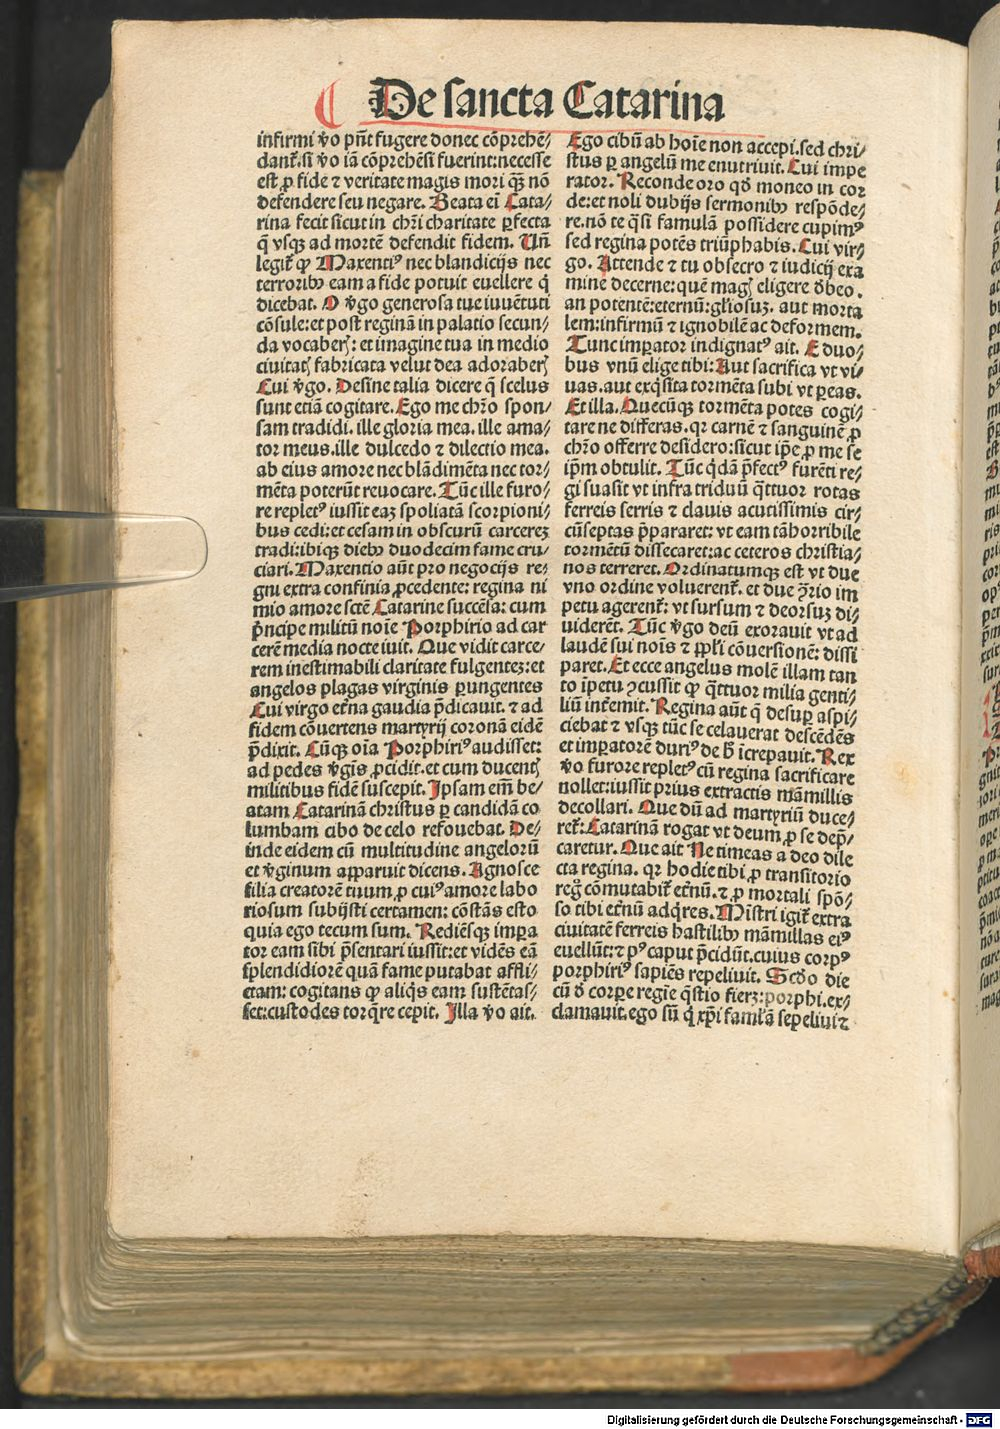 De sancta Catarina
infirmi v̄o pn̄t fugere donec cōprehē⸗
dant᷑. si v̄o iā cōprehēsi fuerint: necesse
est ꝓ fide ⁊ veritate magis mori q̄ꝫ nō
defendere seu negare. Beata ei̅ Cata⸗
rina fecit sicut in chr̄i charitate ꝑfecta
q̄ vsqꝫ ad mortē defendit fidem. Un̄
legit᷑ ꝙ Maxentiꝰ nec blandicijs nec
terroribꝫ eam a fide potuit euellere q̄
dicebat. O v̄go generosa tue iuuētuti
cōsule: et post reginā in palatio secun⸗
da vocaberꝭ: et imagine tua in medio
ciuitatꝭ fabricata velut dea adoraberꝭ
Cui v̄go. Desine talia dicere q̄ scelus
sunt etiā cogitare. Ego me chr̄o spon⸗
sam tradidi. ille gloria mea. ille ama⸗
tor meus. ille dulcedo ⁊ dilectio mea.
ab eius amore nec blādimēta nec tor⸗
mēta poterūt reuocare. Tūc ille furo⸗
re repletꝰ iussit eaꝫ spoliatā scorpioni⸗
bus cedi: et cesam in obscurū carcereꝫ
tradi: ibiqꝫ diebꝫ duodecim fame cru⸗
ciari. Maxentio aūt pro negocijs re⸗
gni extra confinia ꝓcedente: regina ni
mio amore sctē Catarine succēsa: cum
pͥncipe militū noīe Porphirio ad car
cerē media nocte iuit. Que vidit carce⸗
rem inestimabili claritate fulgenteꝫ: et
angelos plagas virginis ꝑungentes
Cui virgo et̄na gaudia p̄dicauit. ⁊ ad
fidem cōuertens martyrij coronā eidē
p̄dixit. Cūqꝫ oīa Porphiriꝰ audisset:
ad pedes v̄gīs ꝓcidit. et cum ducentꝭ
militibus fidē suscepit. Ipsam em̄ be⸗
atam Catarinā christus ꝑ candidā co
lumbam cibo de celo refouebat. De⸗
inde eidem cū multitudine angelorū
et v̄ginum apparuit dicens. Agnosce
filia creatorē tuum, ꝓ cuiꝰ amore labo
riosum subijsti certamen: cōstās esto
quia ego tecum sum. Rediēsqꝫ impera
tor eam sibi p̄sentari iussit: et vidēs eā
splendidiorē quā fame putabat affli⸗
ctam: cogitans ꝙ aliq̄s eam sustētas⸗
set: custodes torq̄re cepit. Illa v̄o ait.
Ego cibū ab hoīe non accepi. sed chri⸗
stus ꝑ angelū me enutriuit. Cui impe
rator. Reconde oro qd̄ moneo in cor
de: et noli dubijs sermonibꝫ respōde⸗
re. nō te q̄si famulā possidere cupimꝰ
sed regina potēs triūphabis. Cui vir⸗
go. Attende ⁊ tu obsecro ⁊ iudicij exa
mine decerne: quē magꝭ eligere d̄beo.
an potentē: eternū: gl̄iosuꝫ. aut morta
lem: infirmū ⁊ ignobilē ac deformem.
Tunc imꝑator indignatꝰ ait. E duo⸗
bus vnū elige tibi: Aut sacrifica vt vi⸗
uas. aut exq̄sita tormēta subi vt ꝑeas.
Et illa. Quecūqꝫ tormēta potes cogi⸗
tare ne differas. qꝛ carnē ⁊ sanguinē ꝓ
chr̄o offerre desidero: sicut ip̄e ꝓ me se
ip̄m obtulit. Tūc q̄dā p̄fectꝰ furēti re⸗
gi suasit vt infra triduū q̄ttuor rotas
ferreis serris ⁊ clauis acutissimis cir⸗
cūseptas p̄pararet: vt eam tā horribile
tormētū dissecaret: ac ceteros christia⸗
nos terreret. Ordinatumqꝫ est vt due
vno ordine voluerent᷑. et due ꝯ̄rio im
petu agerent᷑: vt sursum ⁊ deorsuꝫ di⸗
uiderēt. Tūc v̄go deū exorauit vt ad
laudē sui noīs ⁊ ppl̄i cōuersionē: dissi
paret. Et ecce angelus molē illam tan
to īpetu ꝯcussit ꝙ q̄ttuor milia genti⸗
liū int̄emit. Regina aūt q̄ desuꝑ aspi⸗
ciebat ⁊ vsqꝫ tūc se celauerat descēdēs
et imꝑatorē duriꝰ de h̄ īcrepauit. Rex
v̄o furore repletꝰ cū regina sacrificare
nollet: iussit prius extractis māmillis
decollari. Que dū ad martyriū duce⸗
ret᷑: Catarinā rogat vt deum ꝓ se dep̄⸗
caretur. Que ait Ne timeas a deo dile
cta regina. qꝛ hodie tibi ꝓ transitorio
regͦ cōmutabit᷑ et̄nū. ⁊ ꝓ mortali spō⸗
so tibi et̄nū adq̄res. Mīstri igit᷑ extra
ciuitatē ferreis hastilibꝫ māmillas eiꝰ
euellūt: ⁊ pꝰ caput p̄cidūt. cuius corpꝰ
porphiriꝰ sapiēs sepeliuit. Scd̄o die
cū d̄ corꝑe regīe q̄stio fieꝫ: porphi. ex⸗
clamauit. ego sū q̄ xp̄i faml̄ā sepeliui ⁊
Digitalisierung gefördert durch die Deutsche Forschungsgemeinschaft - DFG